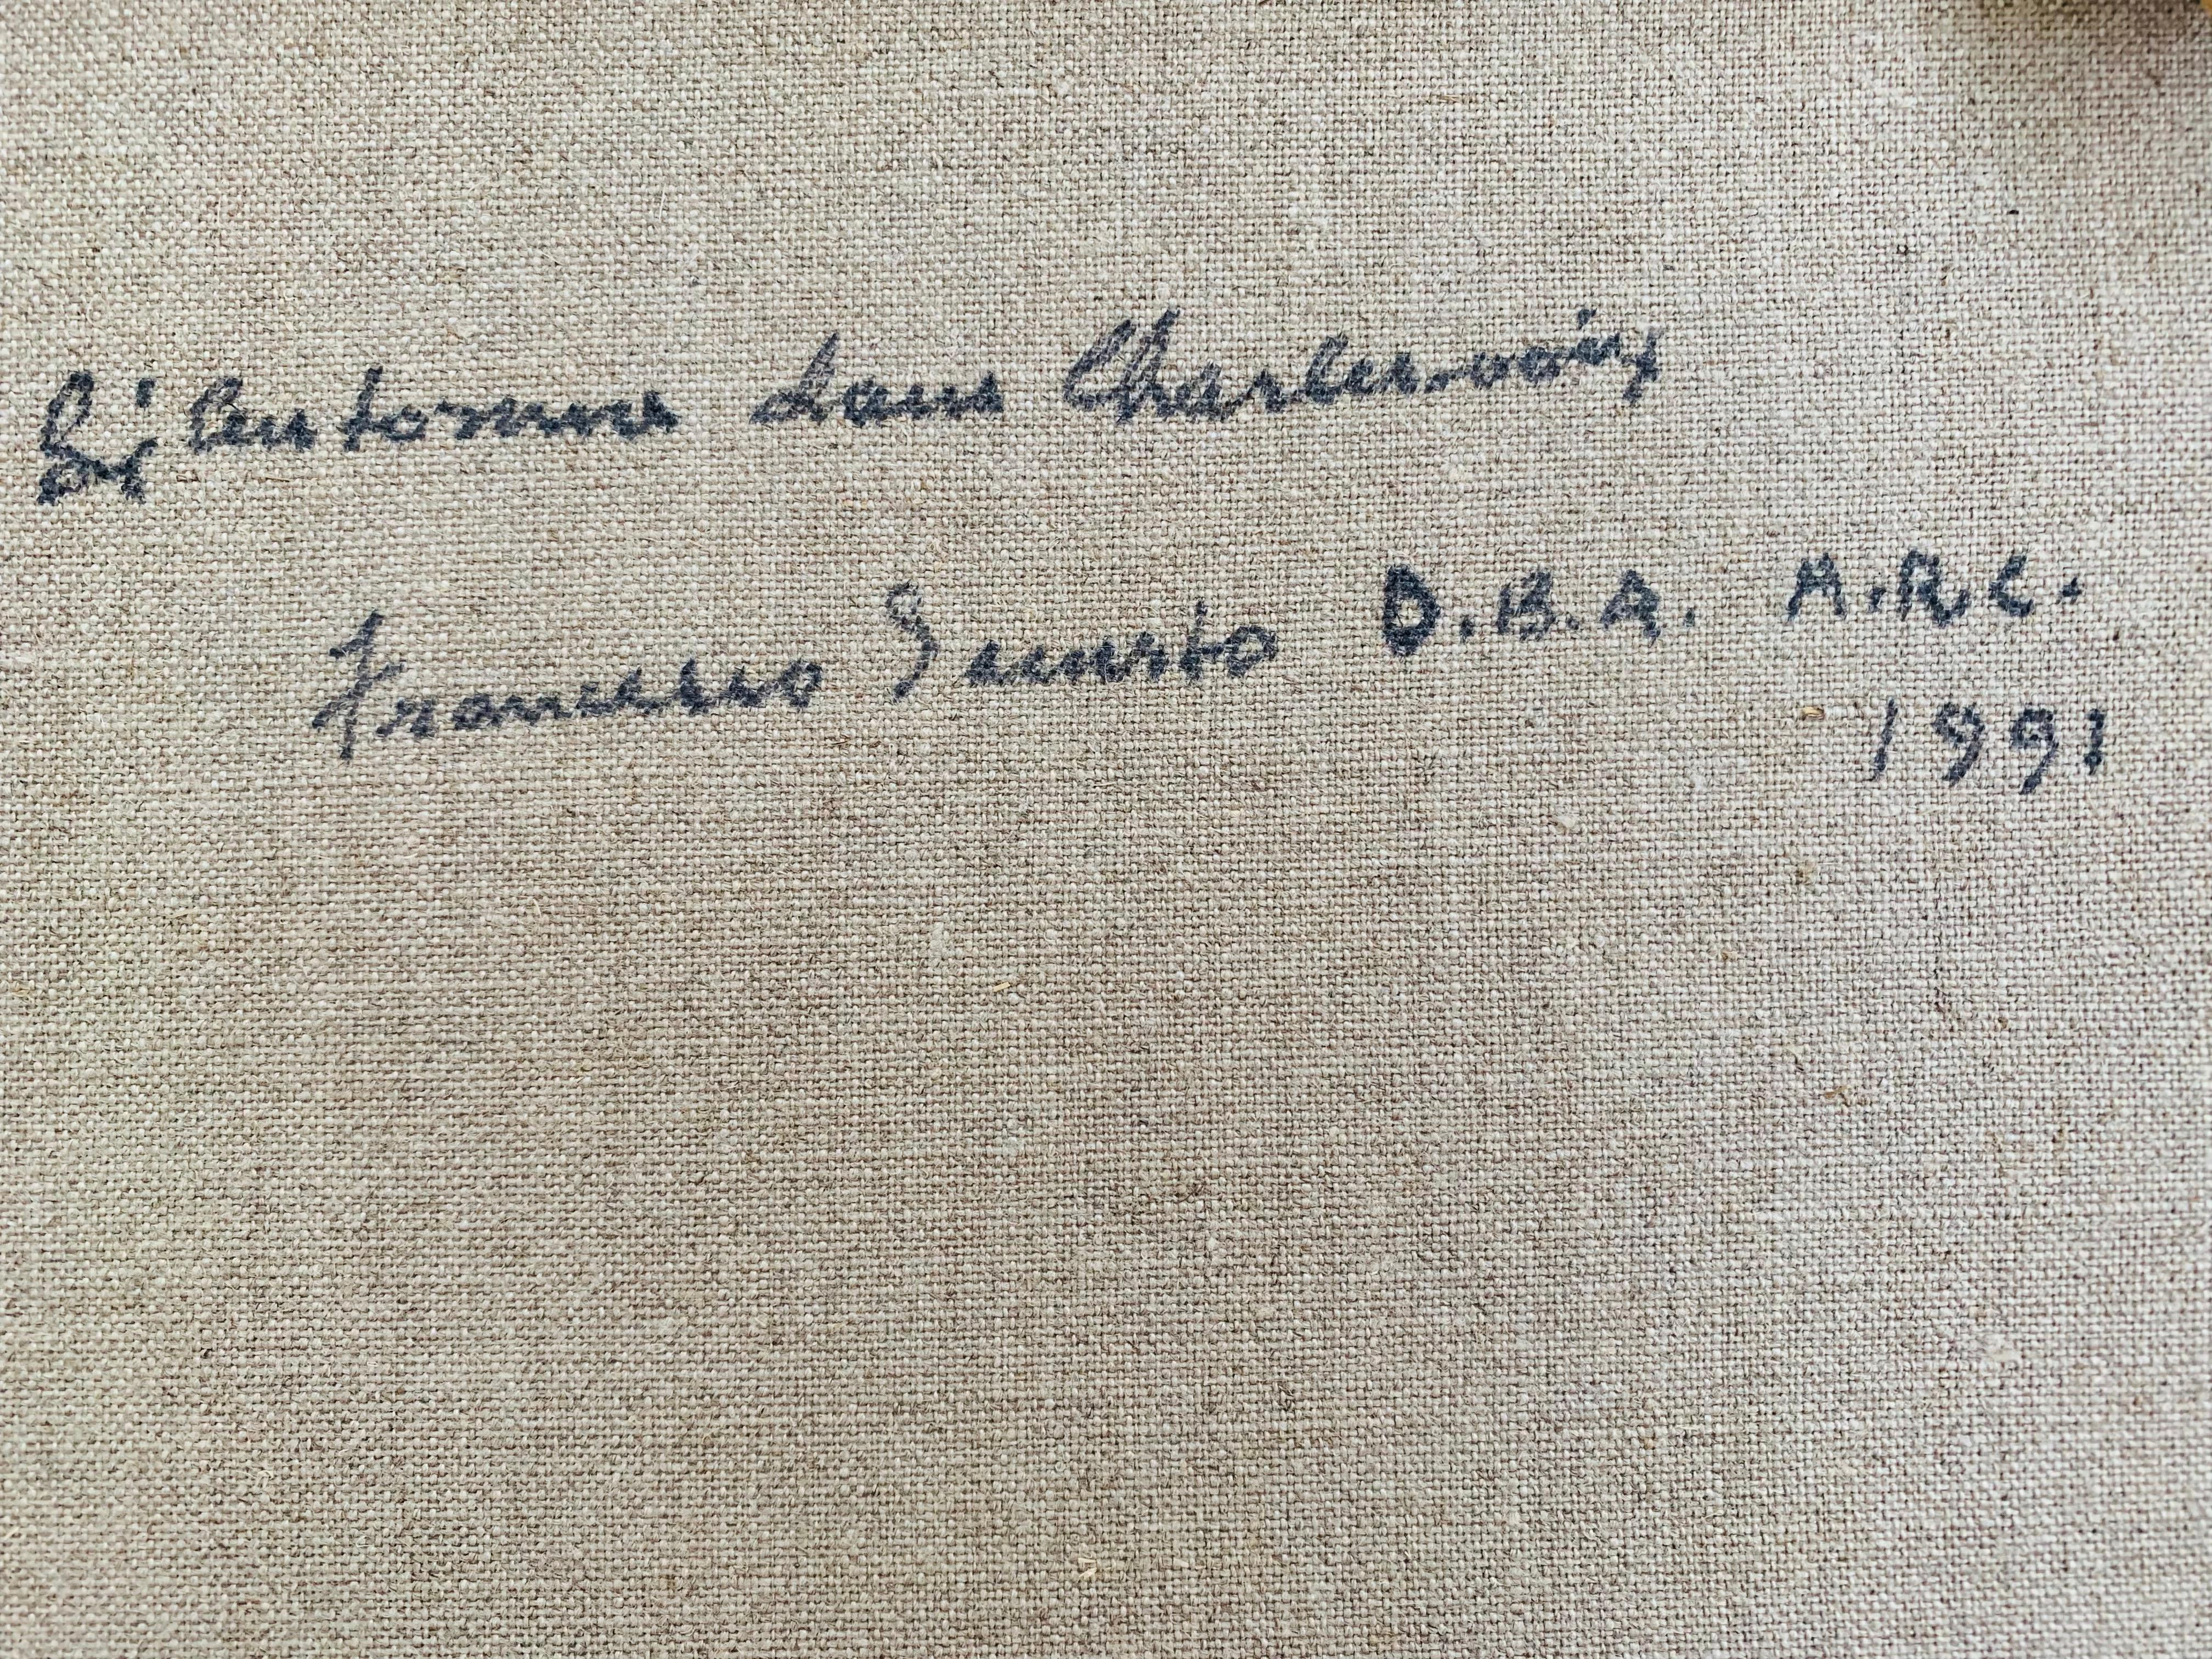 L'automne dans Charlevoix
Francesco Iacurto D.B.A. A.R.C.
1991